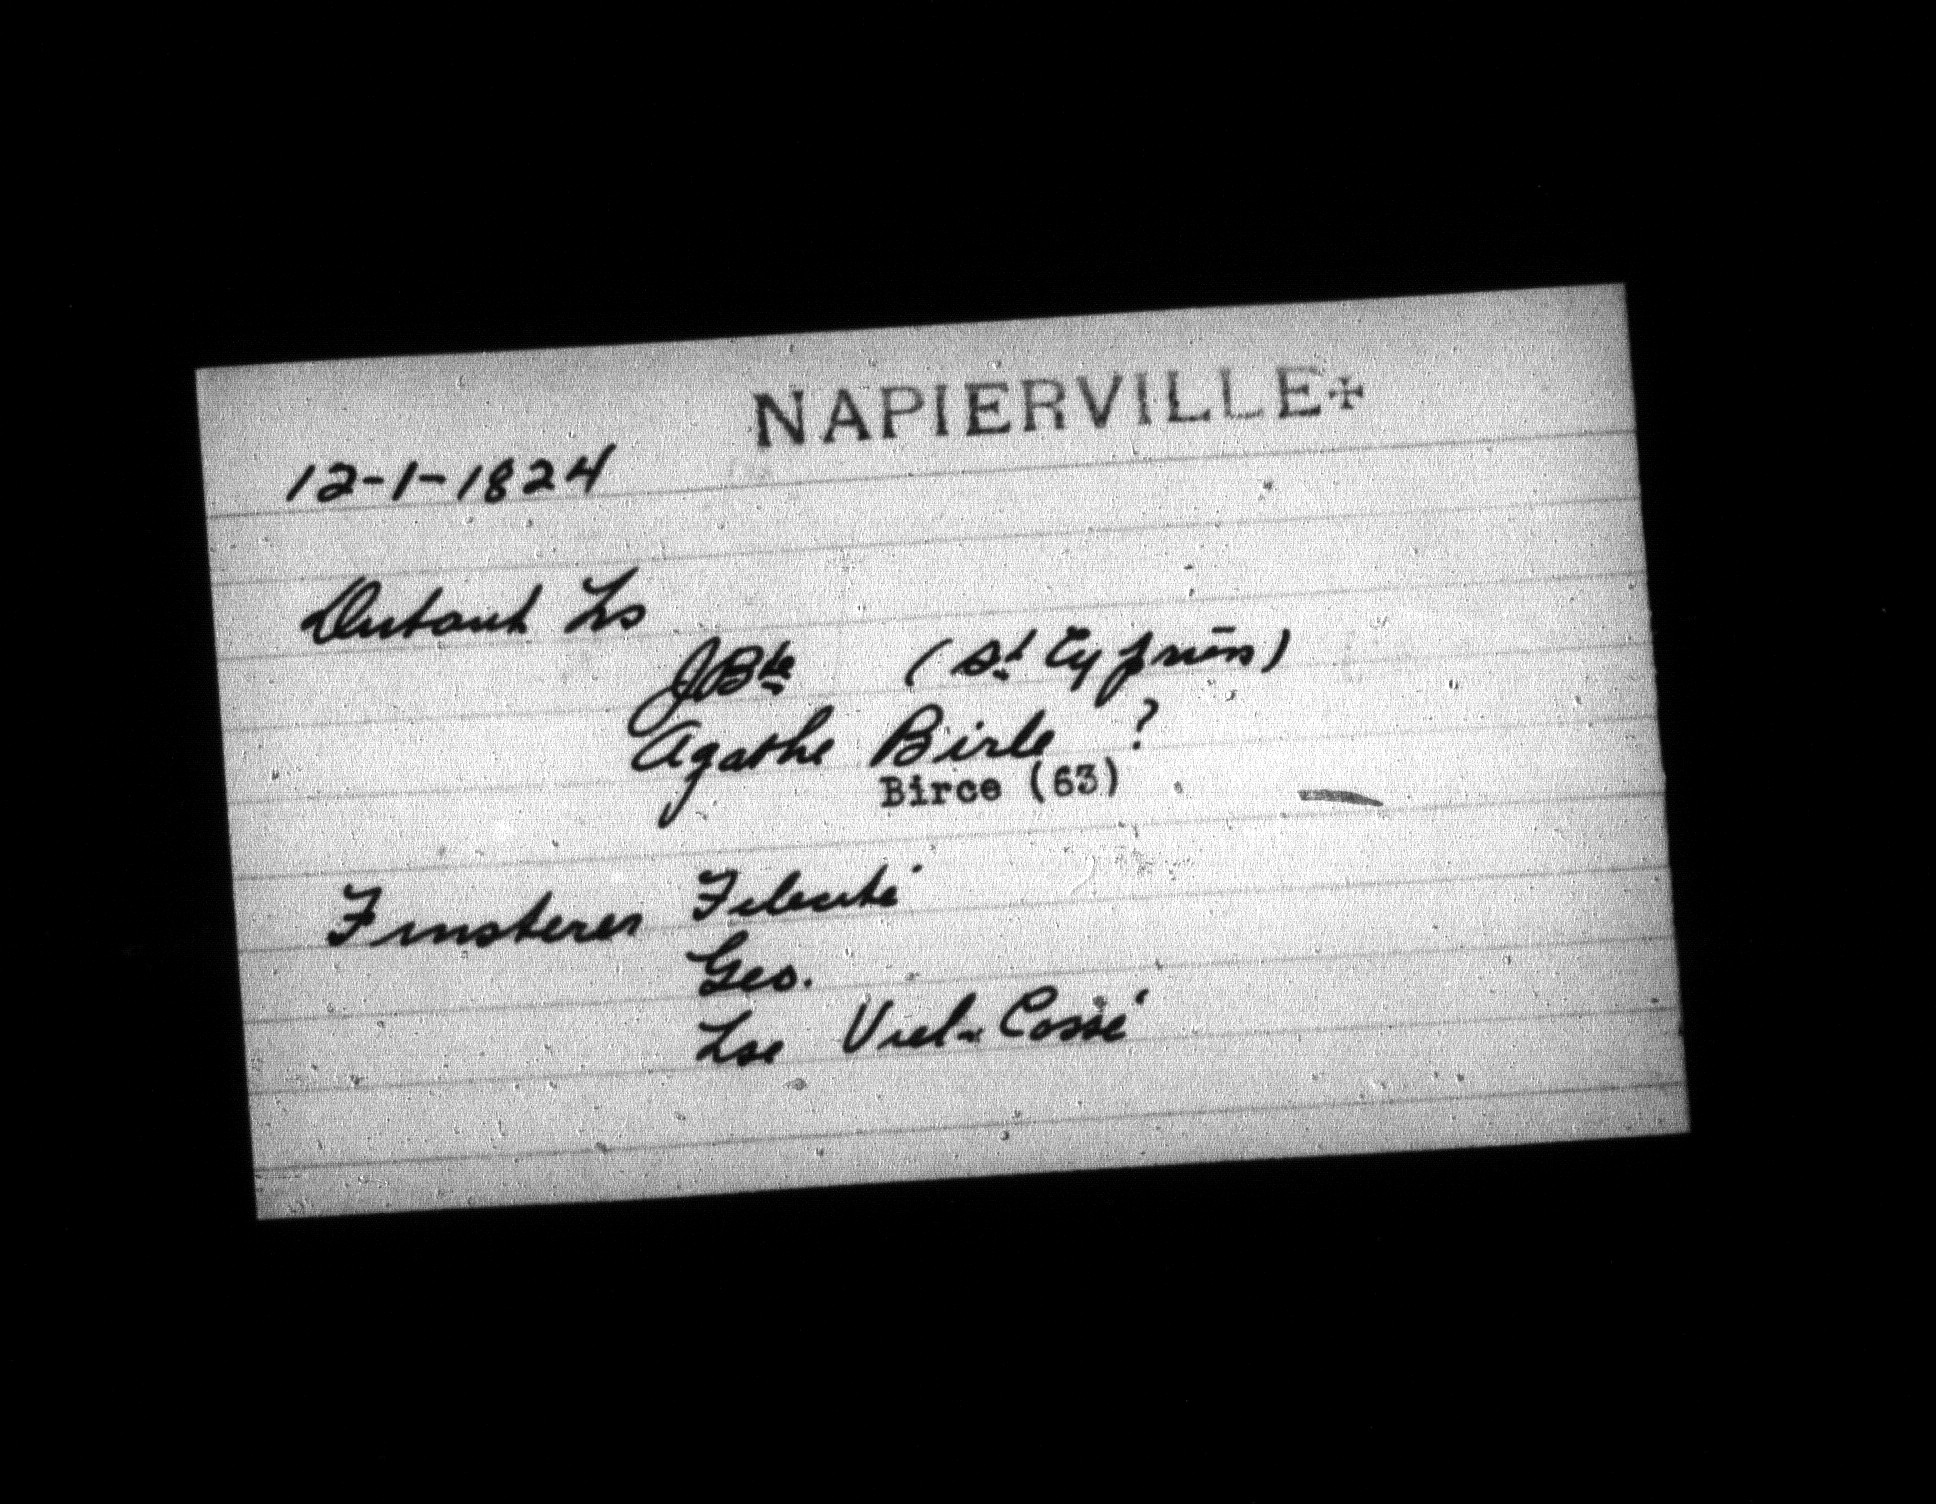 NAPIERVILLE+
12-1-1824
Dutaut Ls
JBte (St Cyprien)
Agathe Birle ?
Birce (63)
Finsterer Félicité
Geo.
Lse Viel-Cossé